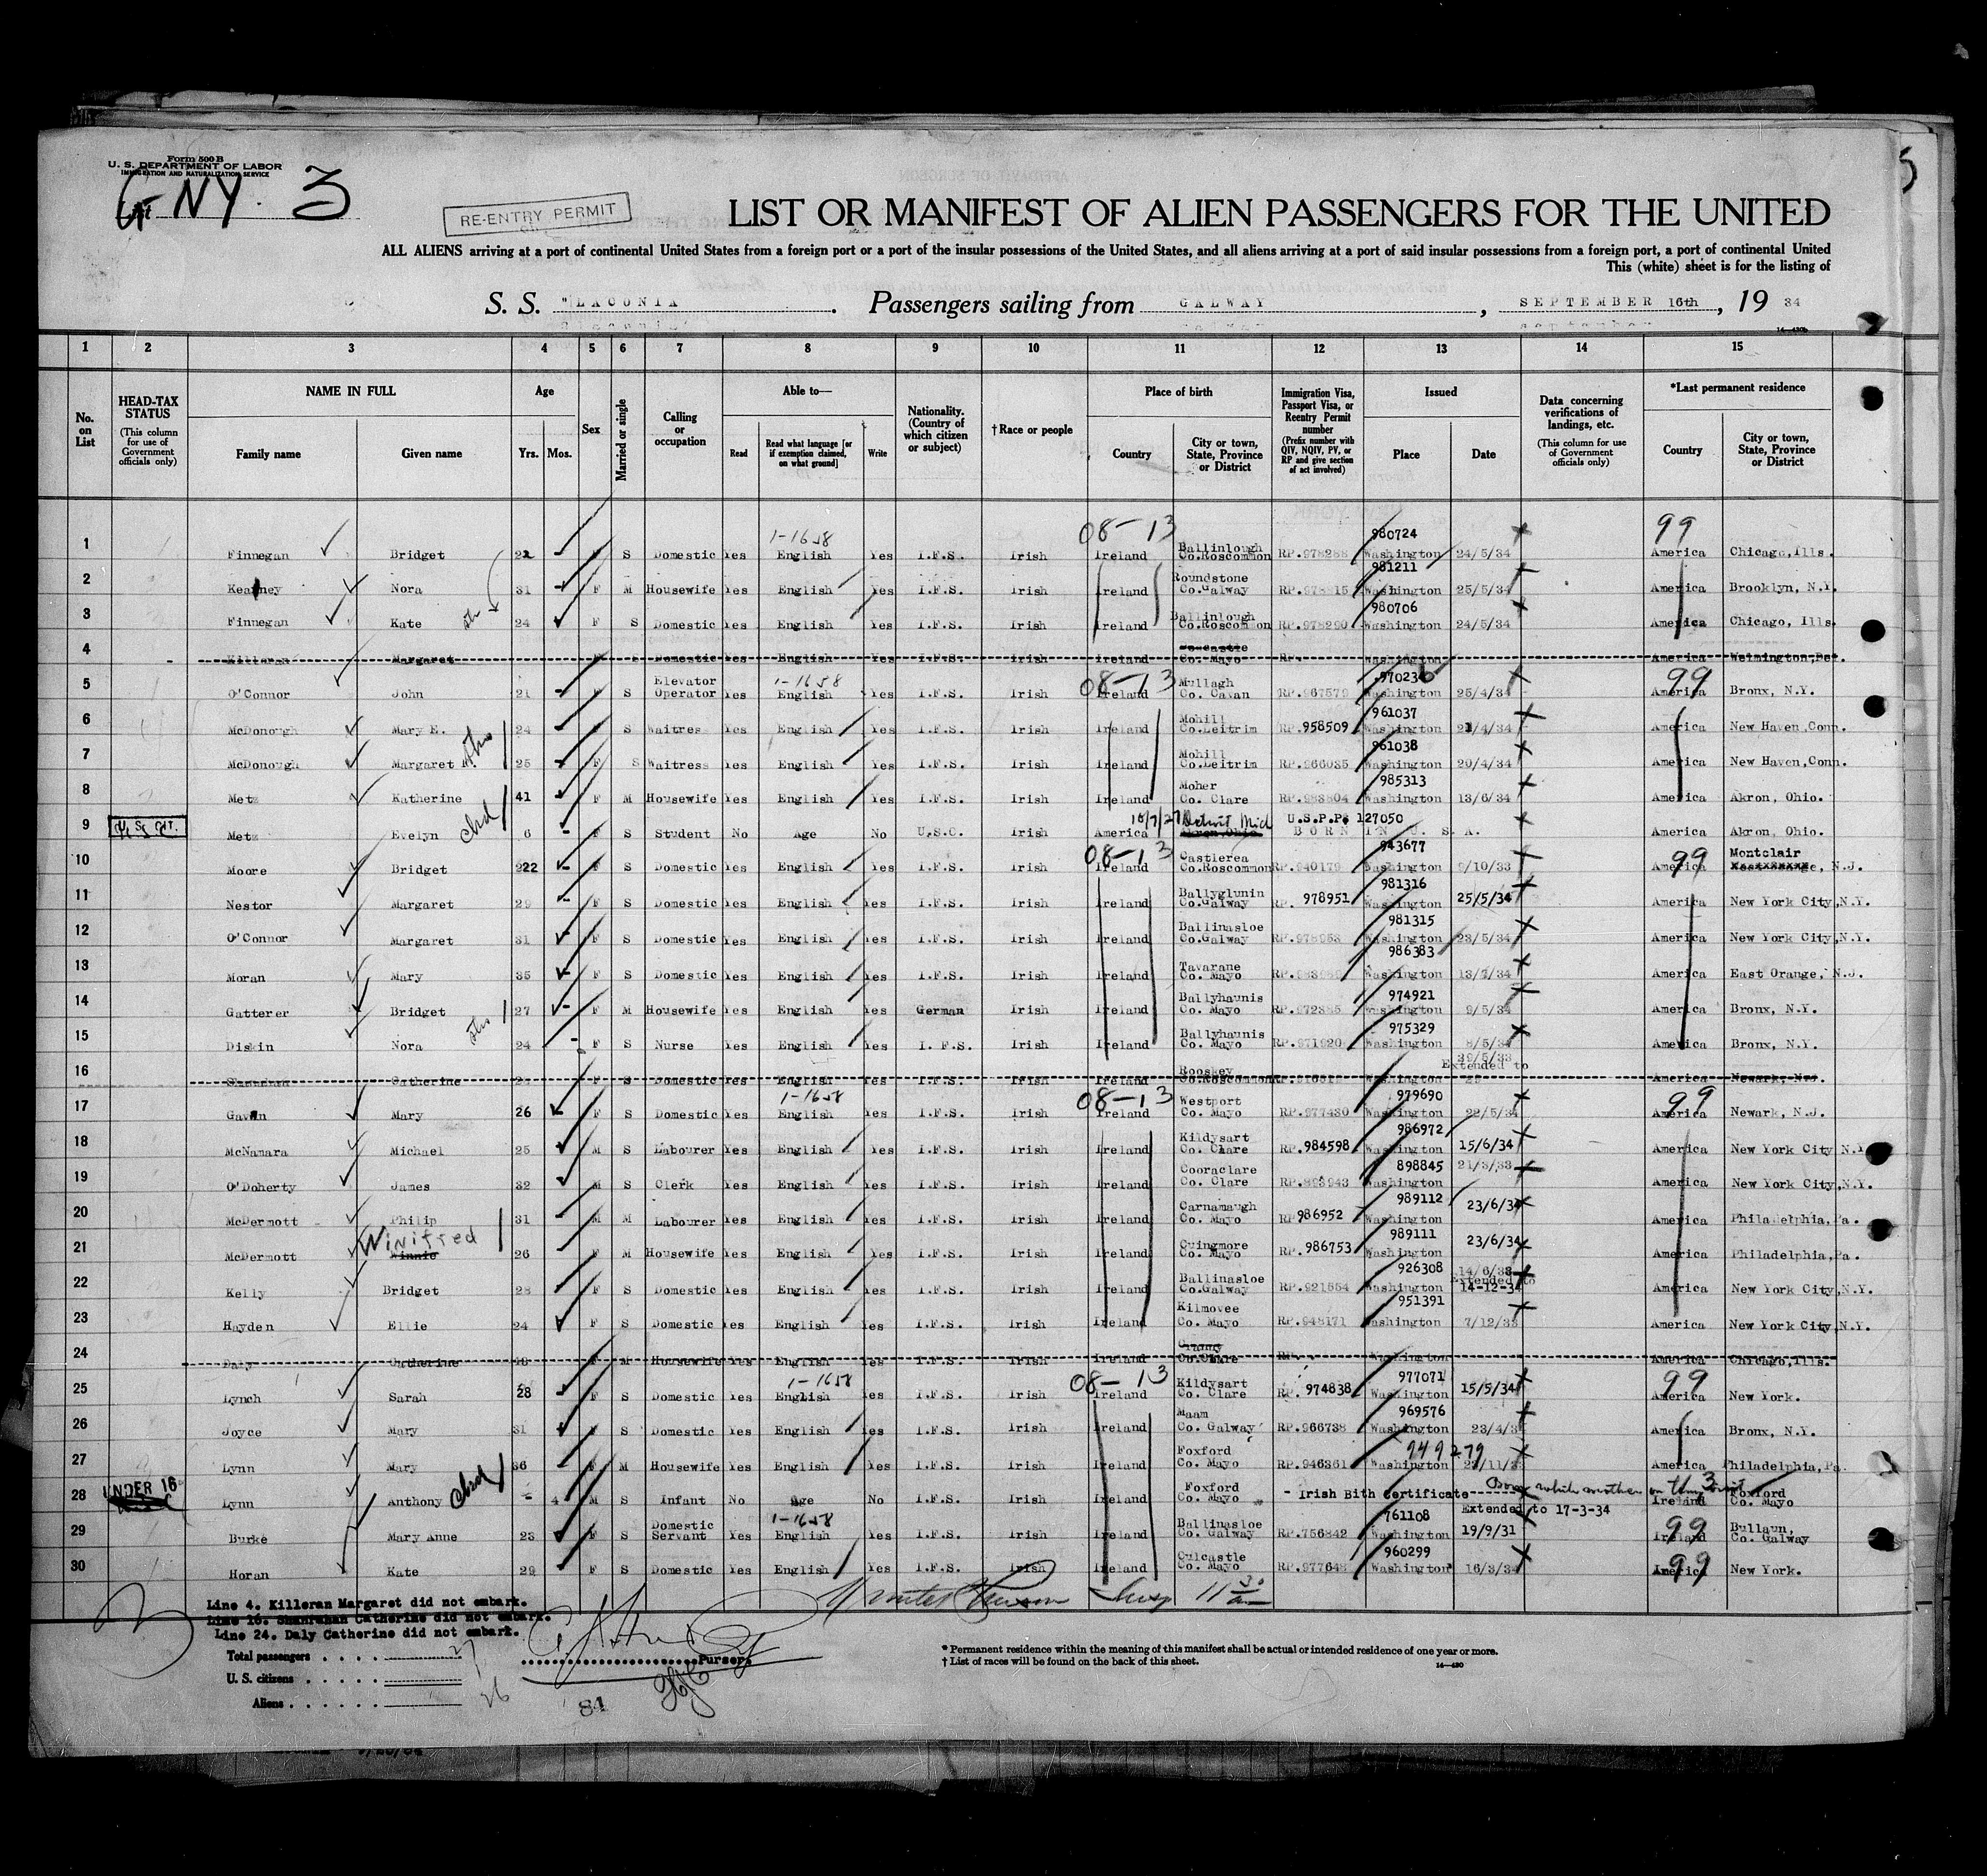 Form 500 B
U. S. DEPARTMENT OF LABOR
IMMIGRATION AND NATURALIZATION SERVICE
NY. 3
RE-ENTRY PERMIT
LIST OR MANIFEST OF ALIEN PASSENGERS FOR THE UNITED
ALL ALIENS arriving at a port of continental United States from a foreign port or a port of the insular possessions of the United States, and all aliens arriving at a port of said insular possessions from a foreign port, a port of continental United
This (white) sheet is for the listing of
S. S. "LACONIA . Passengers sailing from GALWAY , SEPTEMBER 16th , 19 34
1 2 3 4 5 6 7 8 9 10 11 12 13 14 15
No. on List
HEAD-TAX STATUS (This column for use of Government officials only)
NAME IN FULL Family name Given name
Age Yrs. Mos.
Sex
Married or single
Calling or occupation
Able to— Read Read what language [or if exemption claimed, on what ground] Write
Nationality. (Country of which citizen or subject)
†Race or people
Place of birth Country City or town, State, Province or District
Immigration Visa, Passport Visa, or Reentry Permit number (Prefix number with QIV, NQIV, PV, or RP and give section of act involved)
Issued Place Date
Data concerning verifications of landings, etc. (This column for use of Government officials only)
*Last permanent residence Country City or town, State, Province or District
1-1658 08-13 980724 99
1 Finnegan Bridget 22 F S Domestic Yes English Yes I.F.S. Irish Ireland Ballinlough Co.Roscommon Washington 24/5/34 America Chicago,Ills.
981211
2 Nora 31 F M Housewife Yes English Yes I.F.S. Irish Ireland Roundstone Co.Galway RP.978815 Washington 25/5/34 America Brooklyn, N.Y.
980706
3 Finnegan Kate 24 F S Domestic Yes English Yes I.F.S. Irish Ireland Ballinlough Co.Roscommon RP.978290 Washington 24/5/34 America Chicago, Ills.
4 Killeran Margaret F Domestic Yes English Yes I.F.S. Irish Ireland Co. Mayo RP. Washington America
1-1658 08-13 970236 99
5 O'Connor John 21 S Elevator Operator Yes English Yes I.F.S. Irish Ireland Mullagh Co. Cavan RP.967579 Washington 25/4/34 America Bronx, N.Y.
961037
6 McDonough Mary E. 24 S Waitress Yes English Yes I.F.S. Irish Ireland Mohill Co.Leitrim RP.958509 Washington America New Haven,Conn.
961038
7 McDonough Margaret 25 F S Waitress Yes English Yes I.F.S. Irish Ireland Mohill Co.Leitrim RP.966035 Washington 20/4/34 America New Haven,Conn.
985313
8 Metz Katherine 41 F M Housewife Yes English Yes I.F.S. Irish Ireland Moher Co. Clare RP.983804 Washington 13/6/34 America Akron, Ohio.
9 U. S. CIT. Metz Evelyn 6 F S Student No Age No U.S.C. Irish America Akron,Ohio U.S.P.P. 127050 BORN IN U. S. A. America Akron, Ohio.
08-13 943677 99
10 Moore Bridget 222 F S Domestic Yes English Yes I.F.S. Irish Ireland Castlerea Co.Roscommon RP.940179 Washington 9/10/33 America Montclair N.J.
981316
11 Nestor Margaret 29 F S Domestic Yes English Yes I.F.S. Irish Ireland Ballyglunin Co.Galway RP. 978951 Washington 25/5/34 America New York City,N.Y.
981315
12 O'Connor Margaret 31 F S Domestic Yes English Yes I.F.S. Irish Ireland Ballinasloe Co.Galway RP.978953 Washington 23/5/34 America New York City,N.Y.
986383
13 Moran Mary 35 F S Domestic Yes English Yes I.F.S. Irish Ireland Tavarane Co. Mayo Washington America East Orange, N.J.
974921
14 Gatterer Bridget 27 F M Housewife Yes English Yes German Irish Ireland Ballyhaunis Co. Mayo RP.972385 Washington 9/5/34 America Bronx, N.Y.
975329
15 Diskin Nora 24 F S Nurse Yes English Yes I. F.S. Irish Ireland Ballyhaunis Co. Mayo RP.971920 Washington 8/5/34 America Bronx, N.Y.
16 Shanahan Catherine F S Domestic Yes English Yes I.F.S. Irish Ireland Rooskey Co.Roscommon Washington Extended to America Newark,
1-1658 08-13 979690 99
17 Gavin Mary 26 F S Domestic Yes English Yes I.F.S. Irish Ireland Westport Co. Mayo RP.977430 Washington 22/5/34 America Newark, N.J.
986972
18 McNamara Michael 25 M S Labourer Yes English Yes I.F.S. Irish Ireland Kildysart Co. Clare RP.984598 Washington 15/6/34 America New York City N.Y.
898845
19 O'Doherty James 32 M S Clerk Yes English Yes I.F.S. Irish Ireland Cooraclare Co. Clare RP.893943 Washington 21/3/33 America New York City,N.Y.
989112
20 McDermott Philip 31 M M Labourer Yes English Yes I.F.S. Irish Ireland Carnamaugh Co. Mayo RP986952 Washington 23/6/34 America Philadelphia,Pa.
989111
21 McDermott Winnie Winifred 26 F M Housewife Yes English Yes I.F.S. Irish Ireland Co. Mayo RP. 986753 Washington 23/6/34 America Philadelphia,Pa.
926308
22 Kelly Bridget 28 F S Domestic Yes English Yes I.F.S. Irish Ireland Ballinasloe Co.Galway RP.921554 Washington 14/6/33 Extended to 14-12-34 America New York City,N.Y.
951391
23 Hayden Ellie 24 F S Domestic Yes English Yes I.F.S. Irish Ireland Kilmovee Co. Mayo RP.948171 Washington 7/12/33 America New York City,N.Y.
24 Daly Catherine F M Housewife Yes English Yes I.F.S. Irish Ireland Co.Clare RP. Washington America Chicago,Ills.
1-1658 08-13 977071 99
25 Lynch Sarah 28 F S Domestic Yes English Yes I.F.S. Irish Ireland Kildysart Co. Clare RP. 974838 Washington 15/5/34 America New York.
969576
26 Joyce Mary 31 F S Domestic Yes English Yes I.F.S. Irish Ireland Maam Co. Galway RP.966738 Washington 23/4/34 America Bronx, N.Y.
949279
27 Lynn Mary 36 F M Housewife Yes English Yes I.F.S. Irish Ireland Foxford Co. Mayo RP.946361 Washington America Philadelphia,Pa.
28 UNDER 16 Lynn Anthony 4 M S Infant No Age No I.F.S. Irish Ireland Foxford Co. Mayo - Irish Bith Certificate Ireland Foxford Co. Mayo
1-1658 761108 Extended to 17-3-34 99
29 Burke Mary Anne 23 F S Domestic Servant Yes English Yes I.F.S. Irish Ireland Ballinasloe Co. Galway RP.756842 Washington 19/9/31 Ireland Bullaun, Co. Galway
960299 99
30 Horan Kate 29 F S Domestic Yes English Yes I.F.S. Irish Ireland Culcastle Co. Mayo RP.977648 Washington 16/3/34 America New York.
Line 4. Killeran Margaret did not embark.
Line 16. Shanrahan Catherine did not embark.
Line 24. Daly Catherine did not embark.
Total passengers 27
U. S. citizens
Aliens 26
Purser.
84
* Permanent residence within the meaning of this manifest shall be actual or intended residence of one year or more.
† List of races will be found on the back of this sheet.